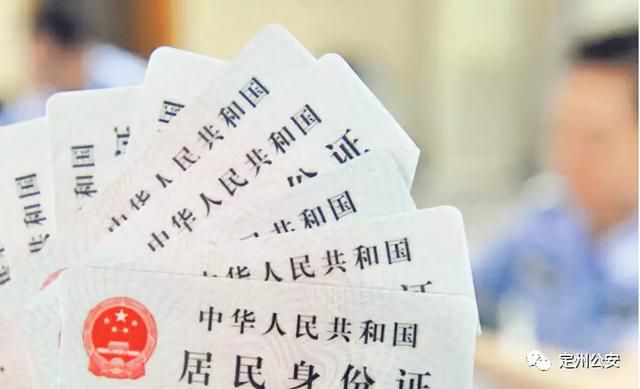 共和国
共和国
中华人民共和国
中华人民共和国
份证
中华人民共和国
中华人民共和国
居民身份证
定州公安